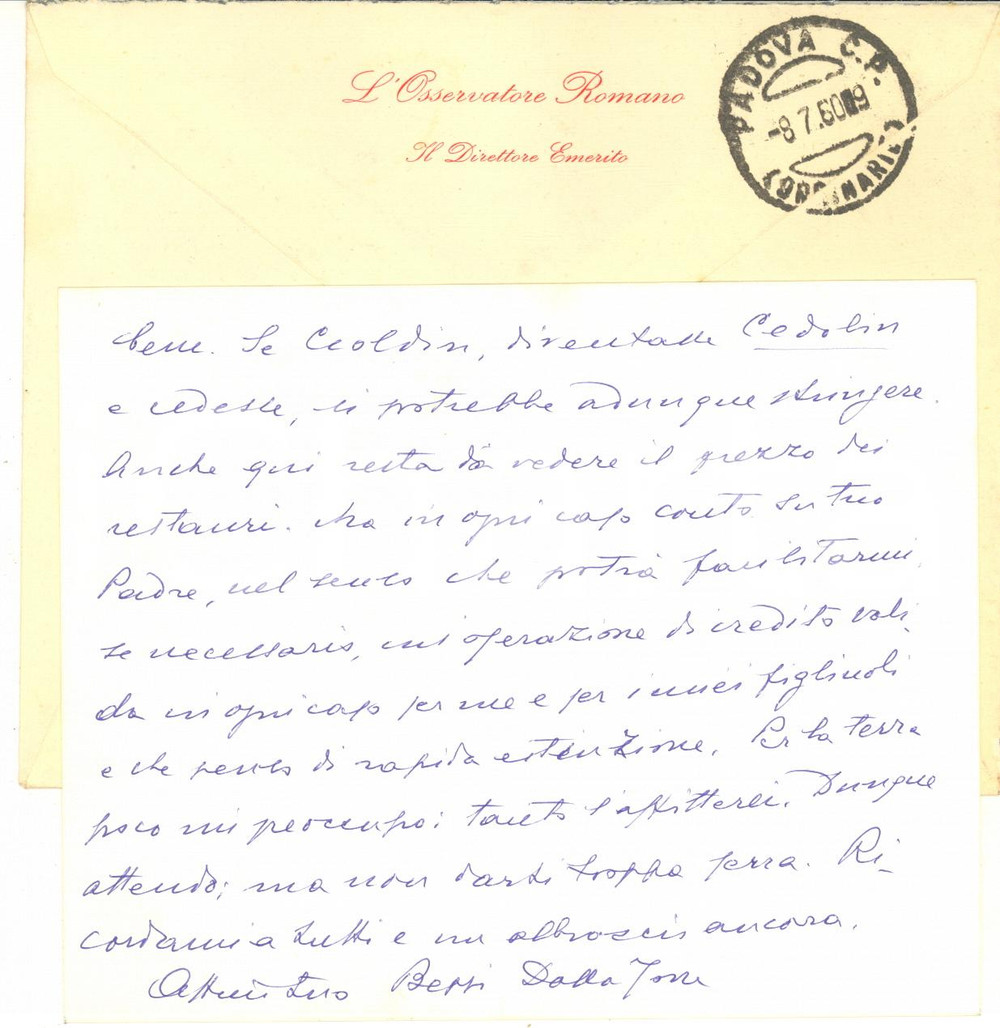 L'Osservatore Romano
Il Direttore Emerito
PADOVA C.P.
-8.7.60 19
(ORDINARIE)
bene. Se Ceoldin, diventasse Cedolin
e cedesse, si potrebbe adunque stringere.
Anche qui resta da vedere il prezzo dei
restauri. Ma in ogni caso conto su tuo
Padre, nel senso che potrà facilitarmi,
se necessario, un'operazione di credito vali-
da in ogni caso per me e per i miei figliuoli
e che penso di rapida estinzione. Per la terra
poco mi preoccupo: tanto l'affitterei. Dunque
attendo; ma non darti troppa pena. Ri-
cordami a tutti e un abbraccio ancora.
Aff.mo tuo Beppi Dalla Torre